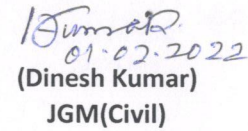 Kumar
01-02-2022
(Dinesh Kumar)
JGM(Civil)